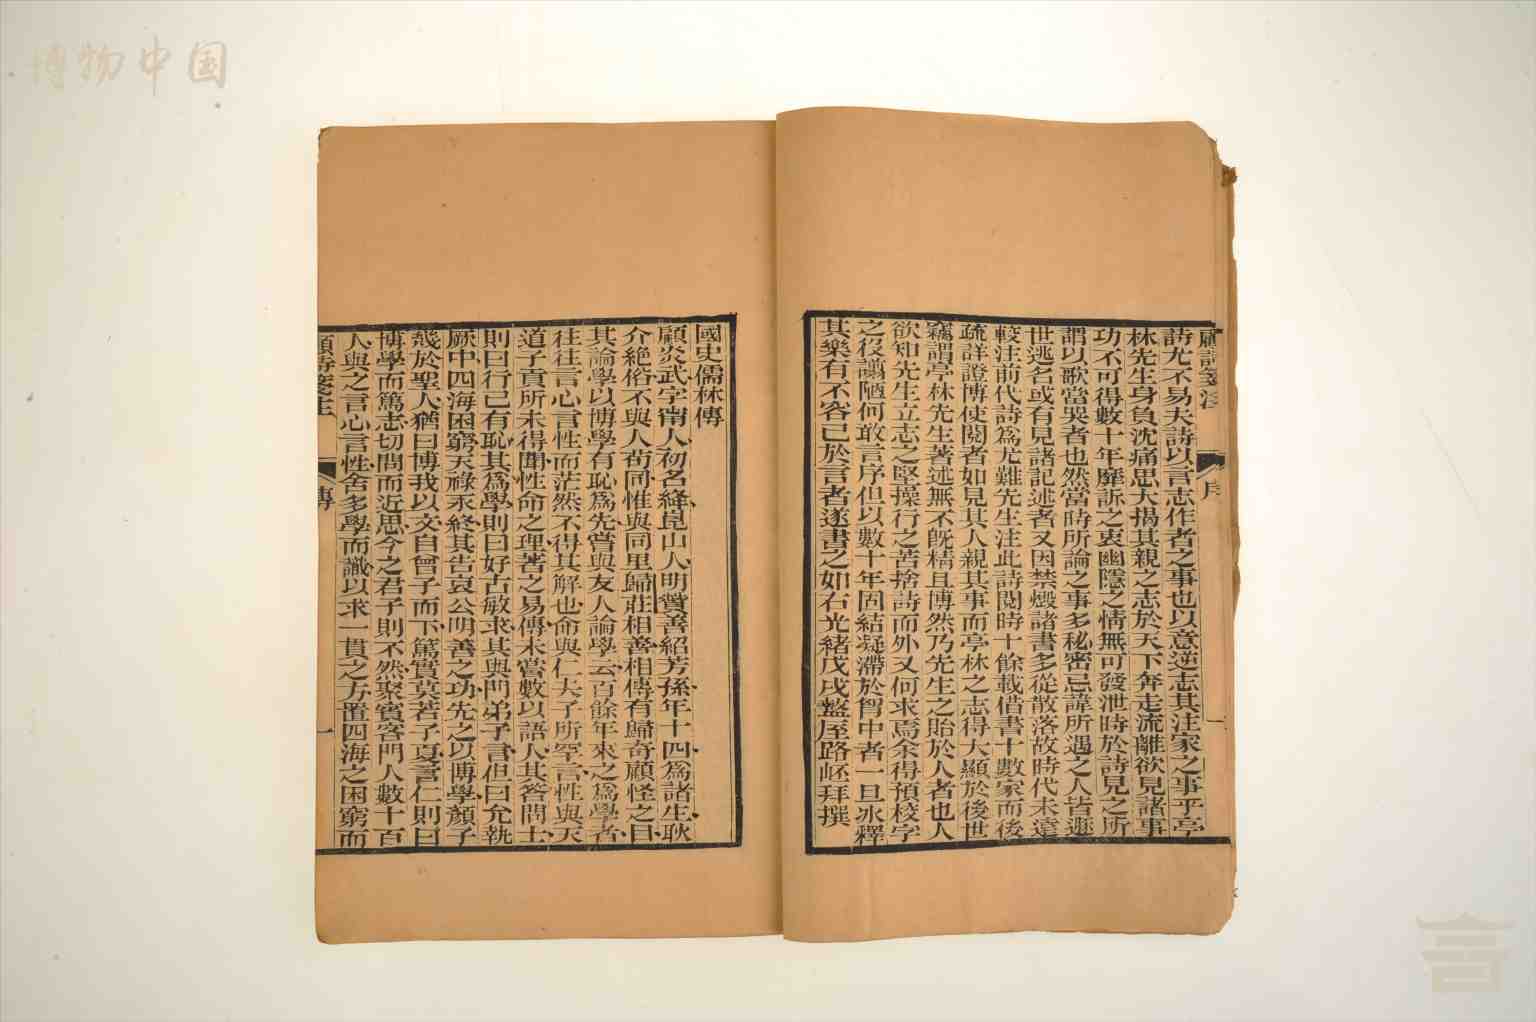 博物中国
顧詩箋注
序
一
詩尤不易夫詩以言志作者之事也以意逆志其注家之事乎亭
林先生身負沈痛思大揭其親之志於天下奔走流離欲見諸事
功不可得數十年靡訴之衷幽隱之情無可發泄時於詩見之所
謂以歌當哭者也然當時所論之事多秘密忌諱所遇之人皆遯
世逃名或有見諸記述者又因禁燬諸書多從散落故時代未遠
較注前代詩爲尤難先生注此詩閱時十餘載借書十數家而後
疏詳證博使閱者如見其人親其事而亭林之志得大顯於後世
竊謂亭林先生著述無不旣精且博然乃先生之貽於人者也人
欲知先生立志之堅操行之苦捨詩而外又何求焉余得預校字
之役譾陋何敢言序但以數十年固結凝滯於胷中者一旦冰釋
其樂有不容已於言者遂書之如右光緒戊戌盩厔路岯拜撰
國史儒林傳
顧炎武字甯人初名絳崑山人明贊善紹芳孫年十四爲諸生耿
介絶俗不與人苟同惟與同里歸莊相善相傳有歸奇顧怪之目
其論學以博學有恥爲先嘗與友人論學云百餘年來之爲學者
往往言心言性而茫然不得其解也命與仁夫子所罕言性與天
道子貢所未得聞性命之理著之易傳未嘗數以語人其答問士
則曰行己有恥其爲學則曰好古敏求其與門弟子言但曰允執
厥中四海困窮天祿永終其告哀公明善之功先之以博學顏子
幾於聖人猶曰博我以文自曾子而下篤實莫若子夏言仁則曰
博學而篤志切問而近思今之君子則不然聚賓客門人數十百
人與之言心言性舍多學而識以求一貫之方置四海之困窮而
顧詩箋注
傳
一